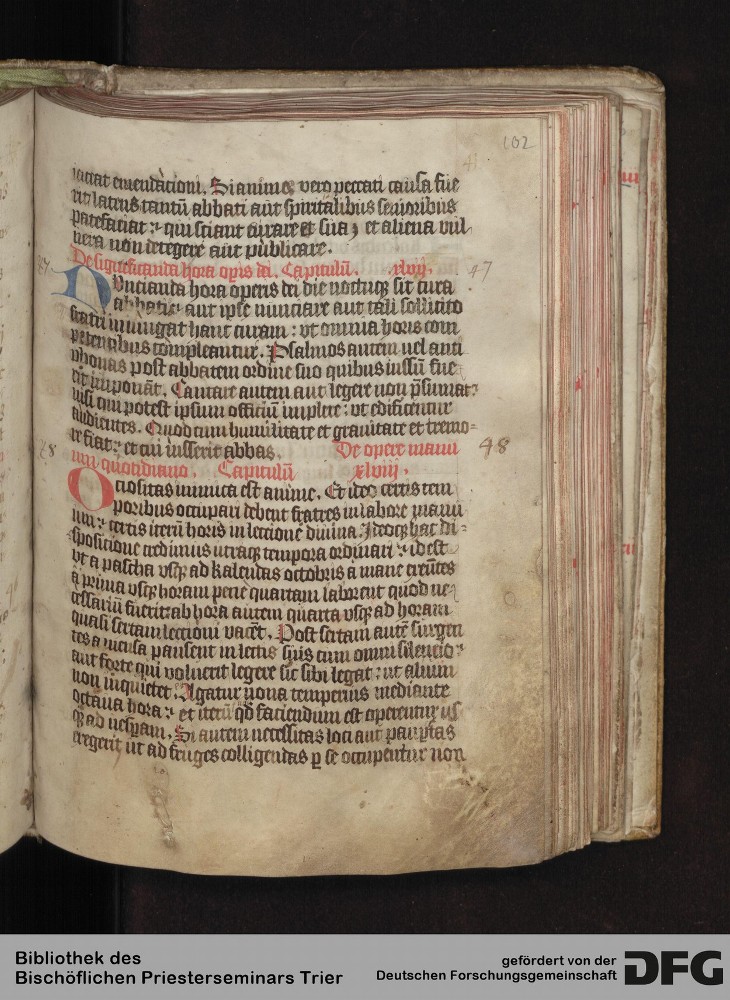 102
iaceat emendationi. Si anime vero peccati causa fue
rit latens tantū abbati aut spiritalibus senioribus
patefaciat : qui sciant curare et sua et aliena vul
nera non detegere aut publicare.
De significanda hora opis dei. Capitulū. xlvij.
47
Nuncianda hora operis dei die noctuqz sit cura
abbatis : aut ipse nunciare aut tali sollicito
fratri iniungat hanc curam : vt omnia horis com
petentibus compleantur. Psalmos autem uel anti
phonas post abbatem ordine suo quibus iussū fue
rit imponāt. Cantare autem aut legere non p̄sumat
nisi qui potest ipsum officiū implere : vt edificentur
audientes. Quod cum humilitate et grauitate et tremo=
re fiat : et cui iusserit abbas. De opere manu
48
um quotidiano. Capitulū xlviij.
Ociositas inimica est anime. Et ideo certis tem
poribus occupari debent fratres in labore manu
um : certis iterū horis in lectione diuina. Ideoqz hac di=
spositione credimus utraqz tempora ordinari : id est
vt a pascha vsqz ad kalendas octobris a mane exeūtes
a prima vsqz horam pene quartam laborent quod ne
cessariū fuerit: ab hora autem quarta vsqz ad horam
quasi sextam lectioni vacēt. Post sextam autē surgen
tes a mensa pausent in lectis suis cum omni silencio :
aut forte qui voluerit legere sic sibi legat : ut alium
non inquietet. Agatur nona temperius mediante
octaua hora : et iterū qd faciendum est operentur us
qz ad vesperam. Si autem necessitas loci aut paup̄tas
exegerit ut ad fruges colligendas p se occupentur non
Bibliothek des
Bischöflichen Priesterseminars Trier
gefördert von der
Deutschen Forschungsgemeinschaft
DFG